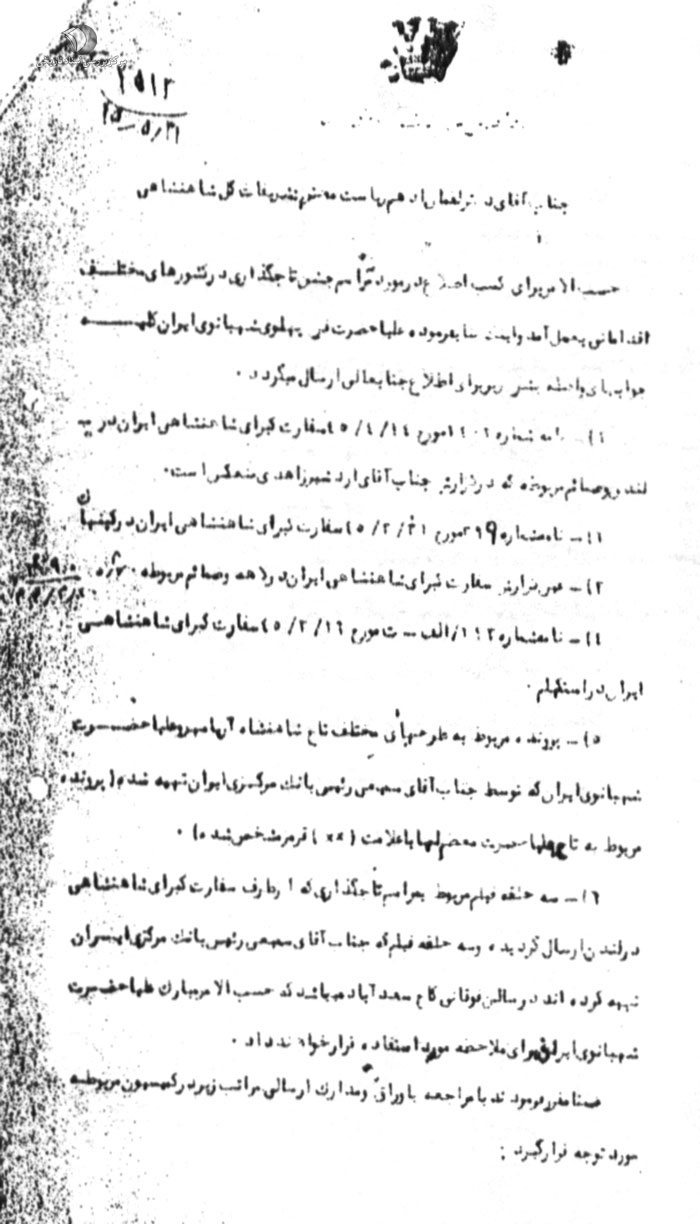 ۲۵۱۳
۲۵/۵/۳۱
جناب آقای دکتر لقمان ادهم ریاست محترم تشریفات کل شاهنشاهی
حسب الامر برای کسب اطلاع در مورد مراسم جشن تاجگذاری در کشورهای مختلف
اقداماتی بعمل آمد و اینک بنا بفرموده علیاحضرت فرح پهلوی شهبانوی ایران کلیه
جوابهای واصله بشرح زیر برای اطلاع جنابعالی ارسال میگردد .
۱) ـ نامه شماره مورخ سفارت کبرای شاهنشاهی ایران در
لندن وضمائم مربوطه که در گزارش جناب آقای اردشیر زاهدی منعکس است .
ـ نامه شماره مورخ سفارت کبرای شاهنشاهی ایران در کپنهاک
ـ گزارش سفارت کبرای شاهنشاهی ایران در لاهه وضمائم مربوطه .
ـ نامه شماره /الف ـ ت مورخ سفارت کبرای شاهنشاهی
ایران در استکهلم .
۵) ـ پرونده مربوط به طرحهای مختلف تاج شاهنشاه آریامهر و علیاحضرت
شهبانوی ایران که توسط جناب آقای سمیعی رئیس بانک مرکزی ایران تهیه شده ( پرونده
مربوط به تاج علیاحضرت معظم لها با علامت ( ×× ) قرمز مشخص شده ) .
۶) ـ سه حلقه فیلم مربوط بمراسم تاجگذاری که از طرف سفارت کبرای شاهنشاهی
در لندن ارسال گردیده وسه حلقه فیلم که جناب آقای سمیعی رئیس بانک مرکزی ایران
تهیه کرده اند در سالن فوقانی کاخ سعدآباد میباشد که حسب الامر مبارک علیاحضرت
شهبانوی ایران برای ملاحظه مورد استفاده قرار خواهند داد .
ضمنا مقرر فرمودند با مراجعه باوراق ومدارک ارسالی مراتب زیر در کمیسیون مربوطه
مورد توجه قرار گیرد :